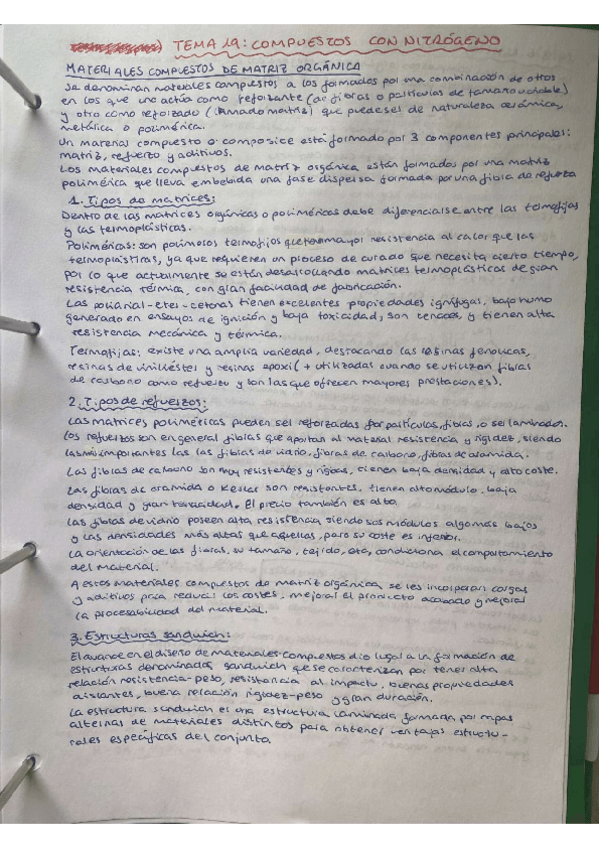 TEMA 19: COMPUESTOS CON NITRÓGENO
MATERIALES COMPUESTOS DE MATRIZ ORGÁNICA
Se denominan materiales compuestos a los formados por una combinación de otros
en los que uno actúa como reforzante (de fibras o partículas de tamaño variable)
y otro como reforzado (llamado matriz) que puede ser de naturaleza cerámica,
metálica o polimérica.
Un material compuesto o composice está formado por 3 componentes principales:
matriz, refuerzo y aditivos.
Los materiales compuestos de matriz orgánica están formados por una matriz
polimérica que lleva embebida una fase dispersa formada por una fibra de refuerzo
1. Tipos de matrices:
Dentro de las matrices orgánicas o poliméricas debe diferenciarse entre las termofijas
y las termoplásticas.
Poliméricas: son polímeros termofijos que tienen mayor resistencia al calor que las
termoplásticas, ya que requieren un proceso de curado que necesita cierto tiempo,
por lo que actualmente se están desarrollando matrices termoplásticas de gran
resistencia térmica, con gran facilidad de fabricación.
Las poliarial-eter-cetonas tienen excelentes propiedades ignífugas, bajo humo
generado en ensayos de ignición y baja toxicidad, son tenaces, y tienen alta
resistencia mecánica y térmica.
Termofijas: existe una amplia variedad, destacando las resinas fenólicas,
resinas de viniléster y resinas epoxi (+ utilizadas cuando se utilizan fibras
de carbono como refuerzo y son las que ofrecen mayores prestaciones).
2. Tipos de refuerzos:
Las matrices poliméricas pueden ser reforzadas por partículas, fibras, o ser laminados.
Los refuerzos son en general fibras que aportan al material resistencia y rigidez, siendo
las más importantes las las fibras de vidrio, fibras de carbono, fibras de aramida.
Las fibras de carbono son muy resistentes y rígidas, tienen baja densidad y alto coste.
Las fibras de aramida o Kevlar son resistentes, tienen alto módulo, baja
densidad y gran tenacidad. El precio también es alto.
Las fibras de vidrio poseen alta resistencia siendo sus módulos algo más bajos
y las densidades más altas que aquellas, pero su coste es inferior.
La orientación de las fibras, su tamaño, tejido, etc, condiciona el comportamiento
del material.
A estos materiales compuestos de matriz orgánica, se les incorporan cargas
y aditivos para reducir los costes, mejorar el producto acabado y mejorar
la procesabilidad del material.
3. Estructuras sandwich:
El avance en el diseño de materiales compuestos dio lugar a la formación de
estructuras denominadas sandwich que se caracterizan por tener alta
relación resistencia-peso, resistencia al impacto, buenas propiedades
aislantes, buena relación rigidez-peso y gran duración.
La estructura sandwich es una estructura laminada formada por capas
alternas de materiales distintos para obtener ventajas estructu-
rales específicas del conjunto.